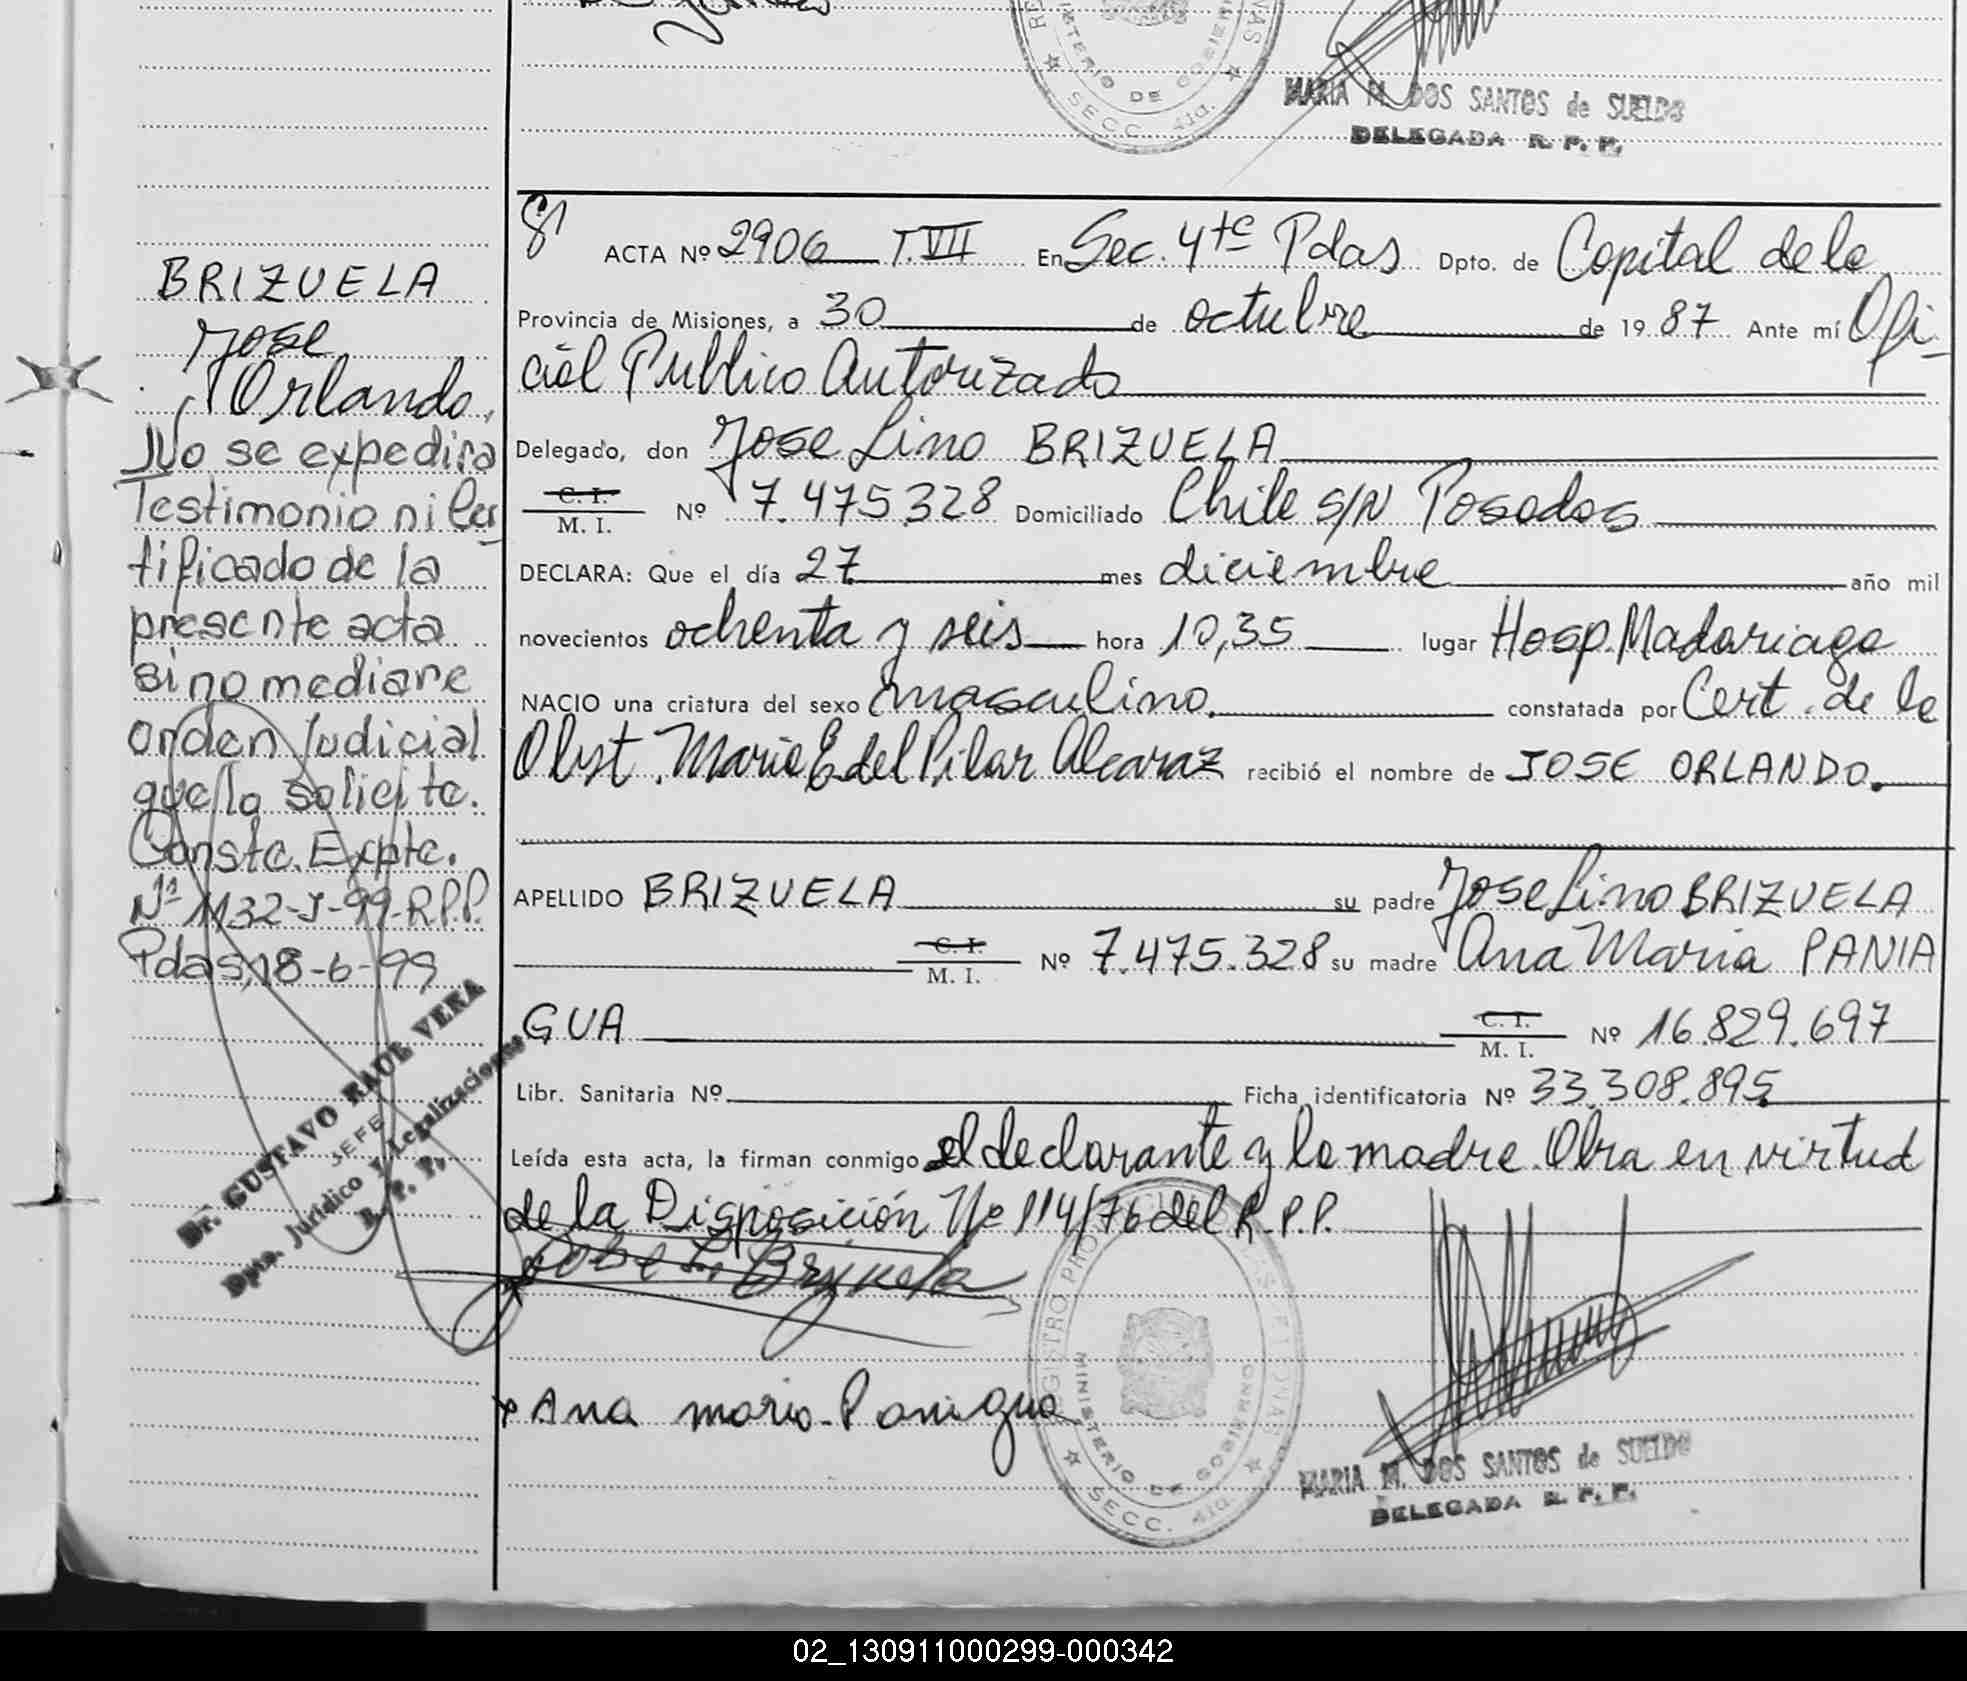 MARIA M. DOS SANTOS de SUELDO
DELEGADA R. P. P.
MINISTERIO DE GOBIERNO
SECC. 4ta.
BRIZUELA
Jose
Orlando,
No se expedira
Testimonio ni Cer
tificado de la
presente acta
sino mediane
orden Judicial
que lo solicite.
Conste. Expte.
Nº 1132-J-99-R.P.P.
Pdas, 18-6-99
Dr. GUSTAVO RAUL VERA
JEFE
Dpto. Jurídico y Legalizaciones
R. P. P.
ACTA Nº 2906 T. VII En Sec. 4ta Pdas Dpto. de Capital de la
Provincia de Misiones, a 30 de octubre de 19 87 Ante mí Ofi-
cial Publico Autorizado
Delegado, don Jose Lino BRIZUELA
C. I.
M. I. Nº 7.475.328 Domiciliado Chile S/N Posadas
DECLARA: Que el día 27 mes diciembre año mil
novecientos ochenta y seis hora 10,35 lugar Hosp. Madariaga
NACIO una criatura del sexo masculino. constatada por Cert. de la
Obst. Maria E. del Pilar Alcaraz recibió el nombre de JOSE ORLANDO.
APELLIDO BRIZUELA su padre Jose Lino BRIZUELA
C. I.
M. I. Nº 7.475.328 su madre Ana Maria PANIA
GUA C. I.
M. I. Nº 16.829.697
Libr. Sanitaria Nº Ficha identificatoria Nº 33.308.895.
Leída esta acta, la firman conmigo el declarante y la madre. Obra en virtud
de la Disposición Nº 114/76 del R.P.P.
Jose L. Brizuela
x Ana maria Paniagua
REGISTRO PROVINCIAL DE LAS PERSONAS
MINISTERIO DE GOBIERNO
SECC. 4ta.
MARIA M. DOS SANTOS de SUELDO
DELEGADA R. P. P.
02_130911000299-000342